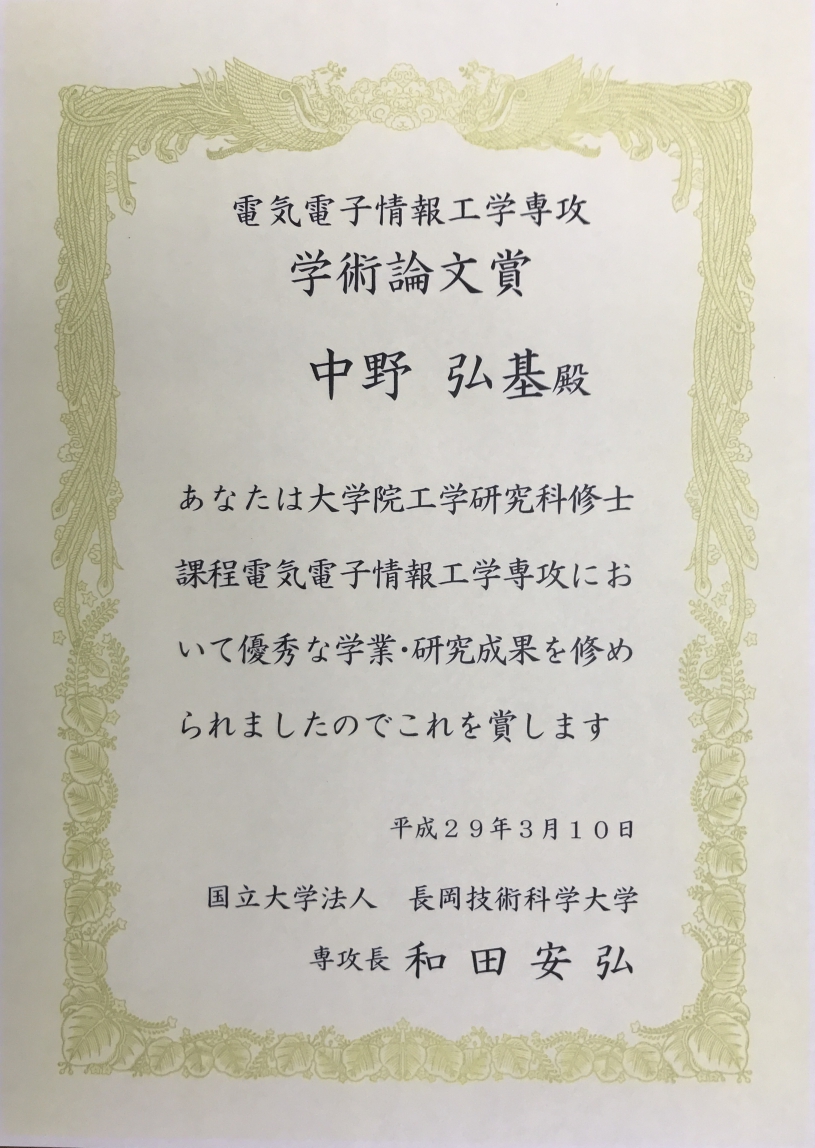 電気電子情報工学専攻
学術論文賞
中野 弘基殿
あなたは大学院工学研究科修士
課程電気電子情報工学専攻にお
いて優秀な学業・研究成果を修め
られましたのでこれを賞します
平成２９年３月１０日
国立大学法人　長岡技術科学大学
専攻長 和田安弘